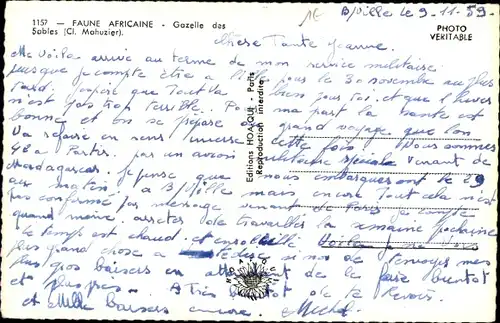 1157 - FAUNE AFRICAINE - Gazelle des
Sables (Cl. Mahuzier).
B/Ville le 9-11-59
PHOTO
VERITABLE
Chère Tante Jeanne.
Me voila arrivé au terme de mon service militaire
puisque je compte être à pour le 30 novembre au plus
tard. J'espère que tout va bien pour toi, et que l'hiver
n'est pas trop terrible. Pour ma part la santé est
bonne et on se prépare au grand voyage que l'on
va refaire en sens inverse cette fois. Nous sommes
48 à partir, par un avion militaire spéciale venant de
Madagascar. Je pense que nous embarquerons le 29
au matin, à B/Ville mais encore tout cela n'est
pas confirmé par message venant de Paris. Je compte
quand même arrêter de travailler la semaine prochaine
Le temps est chaud et ensoleillé. Voila je ne vois
plus grand chose à te dire si non de t'envoyer mes
plus gros baisers en attendant de le faire bientôt
et plus près. A très bientôt de te revoir.
et Mille Baisers encore. Michel
Editions HOA-QUI - Paris
Reproduction interdite
HOA-QUI